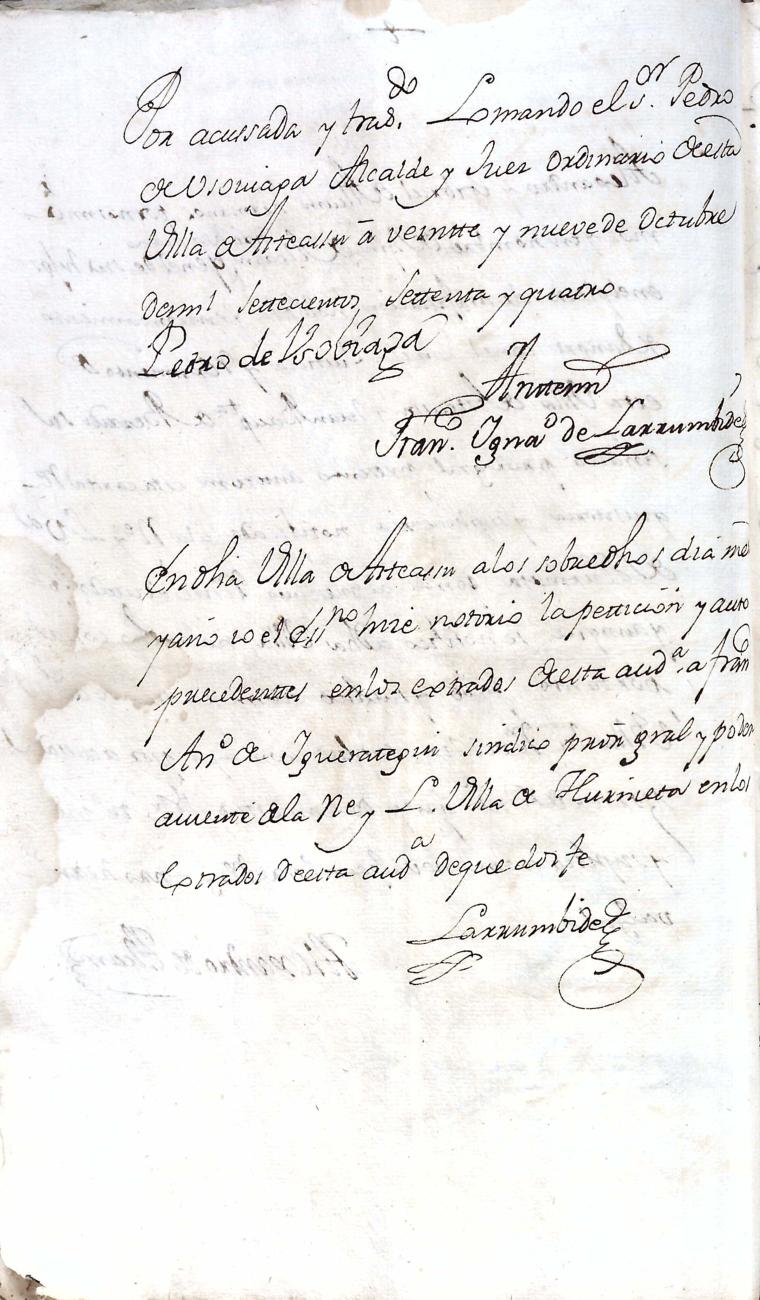 Por acussada y tras.do Lo mando el s.or Pedro
de Usoviaga Alcalde y Juez ordinario de esta
Villa de Arteassu â veintte y nueve de octubre
de mil settecientos settenta y quatro
Pedro de Usobiaga
Antemi
Fran.co Igna.o de Larrumbide
En dha Villa de Arteassu a los sobredhos dia mes
y año io el Ess.no hize notorio la pettición y auto
precedenttes en los extrados de esta aud.a a fran.co
An.o de Iguerategui sindico pror gral y poder
aviente de la Ne y L. Villa de Hurnieta en los
Extrados de esta aud.a de que doi fe
Larrumbide